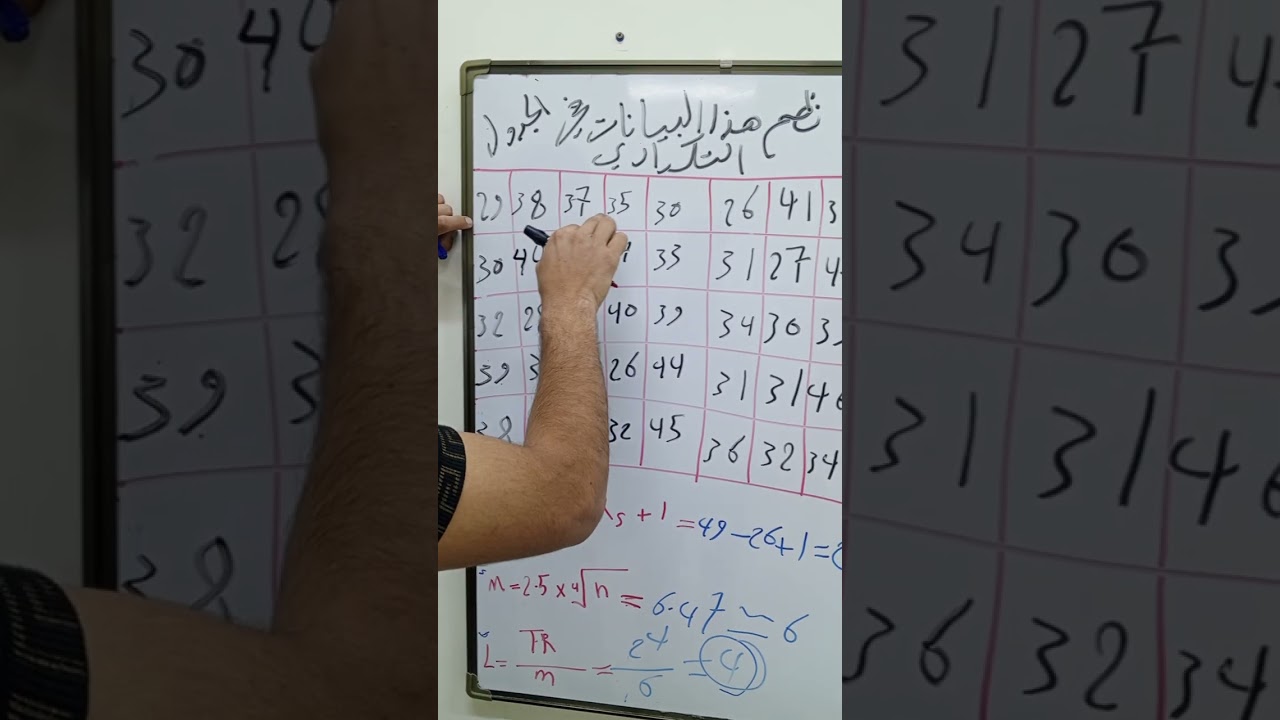 نظم هذا البيانات في الجدول
التكراري
29 38 37 35 30 26 41 3
30 4 33 31 27 4
32 2 40 39 34 30 3
39 3 26 44 31 31 4
38 32 45 36 32 34
s + 1 = 49 - 26 + 1 = 2
M = 2.5 × ∜n = 6.47 ≃ 6
L = TR / m = 24 / 6 = 4